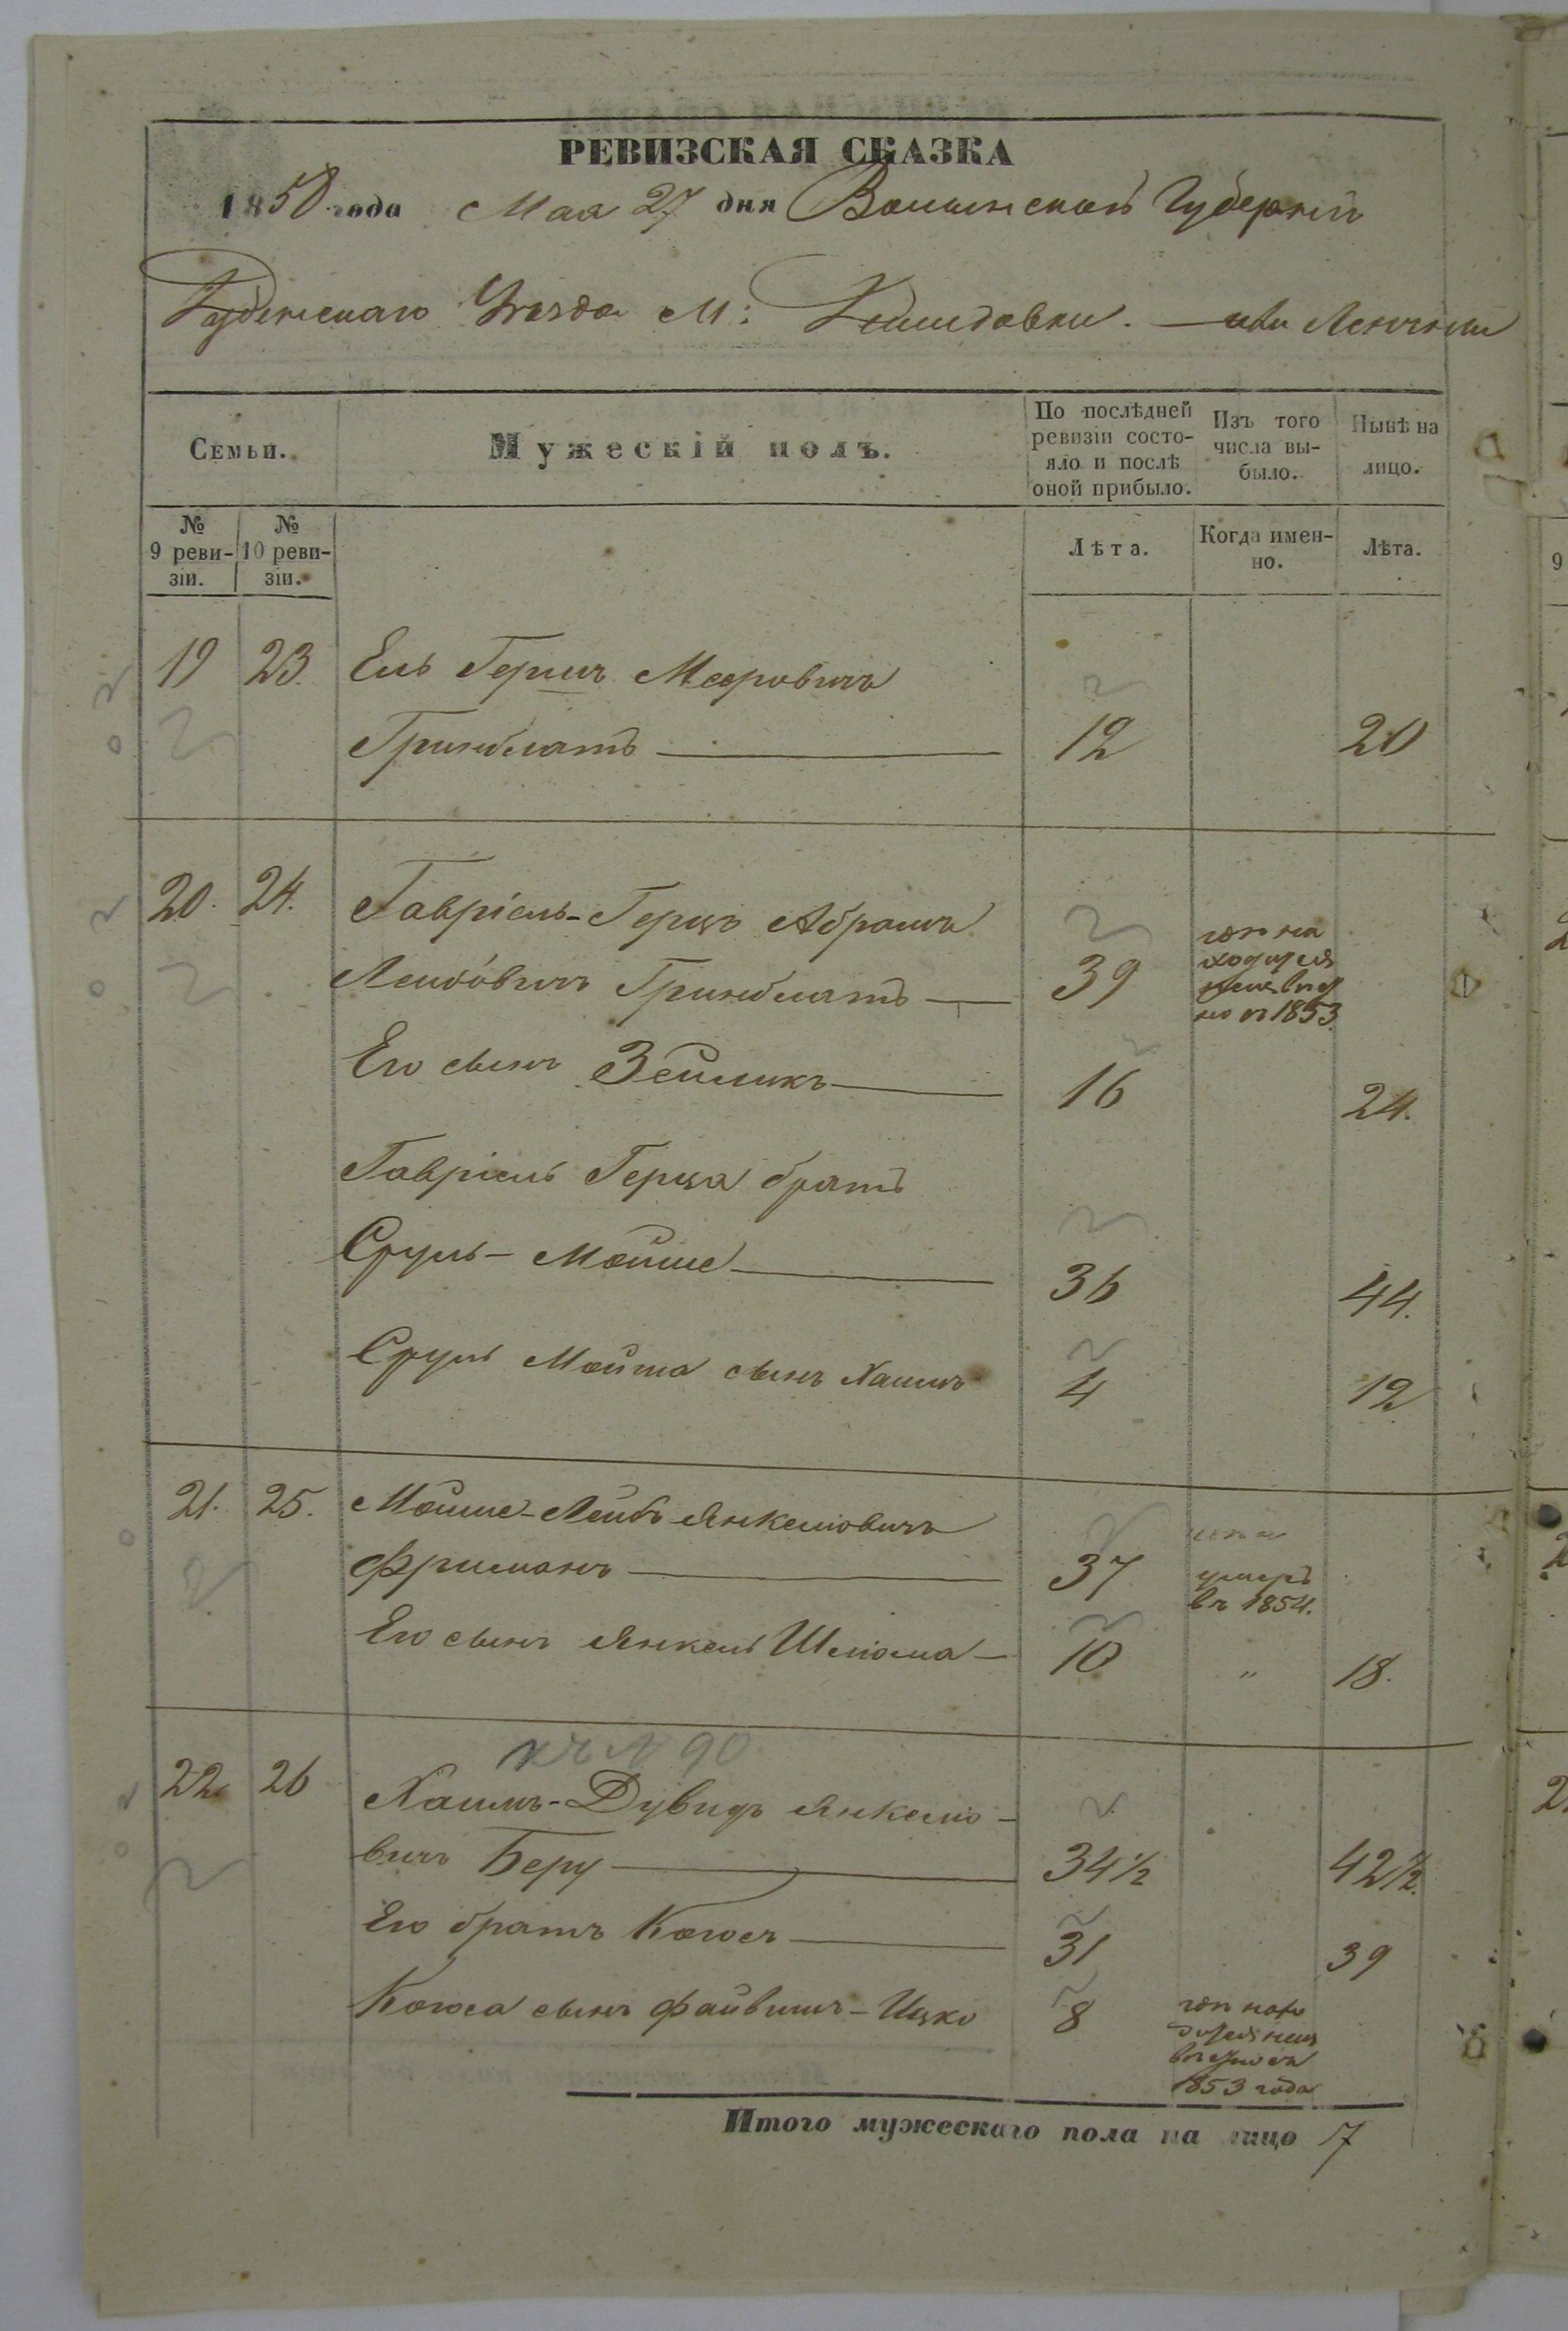 РЕВИЗСКАЯ СКАЗКА
1858 года Мая 27 дня Волынской Губерніи
Уѣзда М:
Семьи.
Мужескій полъ.
По послѣдней ревизіи состояло и послѣ оной прибыло.
Изъ того числа выбыло.
Нынѣ на лицо.
№ 9 ревизіи.
№ 10 ревизіи.
Лѣта.
Когда именно.
Лѣта.
19 23. Ель Гершъ Мееровичъ
Гринблатъ 12 20
20. 24. Гавріель-Герцъ Абрамъ
Лейбовичъ Гринблатъ 39 1853
Его сынъ Зейликъ 16 24.
Гавріель Герца братъ
Сруль-Мойше 36 44.
Сруль Мойша сынъ Хаимъ 4 12
21. 25. Мойше-Лейбъ Янкелювичъ
Фриманъ 37 умеръ въ 1854.
Его сынъ Янкель Шлюма 10 " 18.
къ № 90
22 26 Хаимъ-Дувидъ Янкелю-
вичъ Беру 34½ 42½.
Его братъ 31 39
сынъ Файвишъ-Ицко 8
1853 года
Итого мужескаго пола на лицо 7